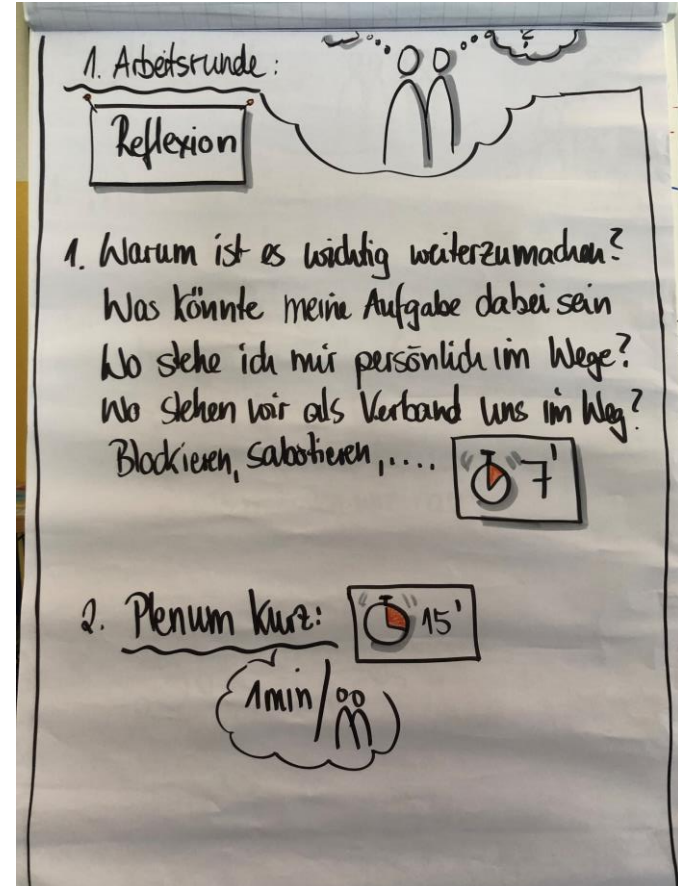 1. Arbeitsrunde:
?
Reflexion
1. Warum ist es wichtig weiterzumachen?
Was könnte meine Aufgabe dabei sein
Wo stehe ich mir persönlich im Wege?
Wo stehen wir als Verband uns im Weg?
Blockieren, sabotieren, ....
7'
2. Plenum kurz:
15'
1min/